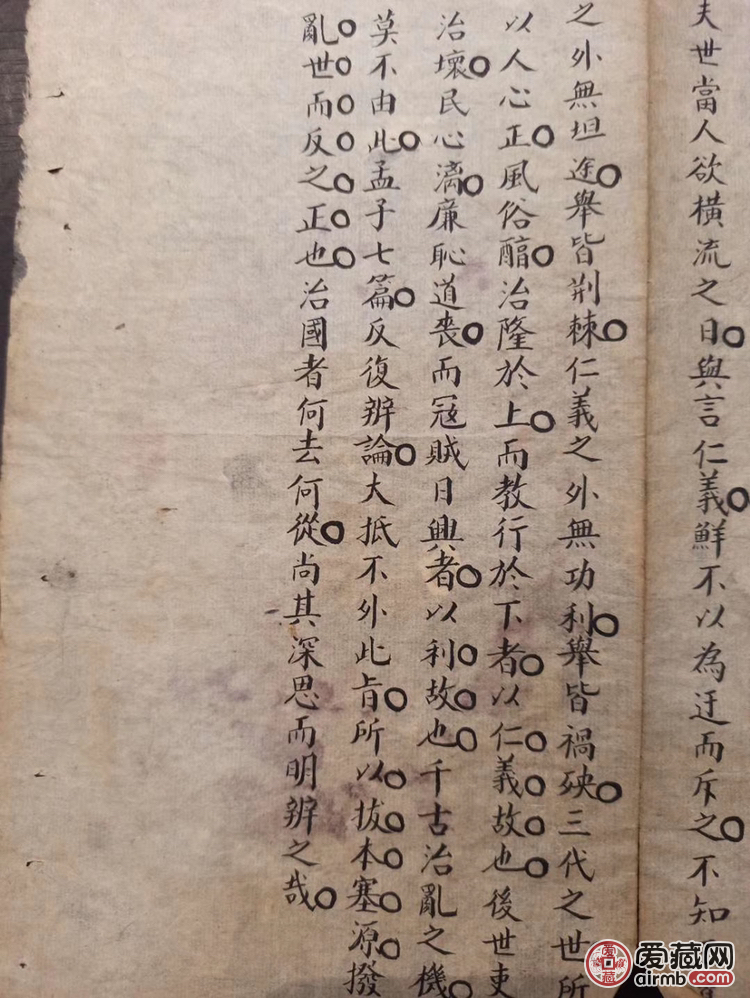 夫世當人欲橫流之日與言仁義鮮不以為迂而斥之不知
之外無坦途舉皆荆棘仁義之外無功利舉皆禍殃三代之世所
以人心正風俗醕治隆於上而教行於下者以仁義故也後世吏
治壞民心漓廉恥道喪而冦賊日興者以利故也千古治亂之機
莫不由此孟子七篇反復辨論大抵不外此旨所以拔本塞源撥
亂世而反之正也治國者何去何從尚其深思而明辨之哉
爱藏网
airmb.com